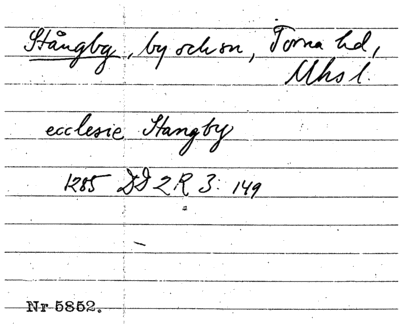 Stångby, by och sn, Torna hd,
Mhs l.
ecclesie Stangby
1285 DD 2R 3: 149
Nr 5852.